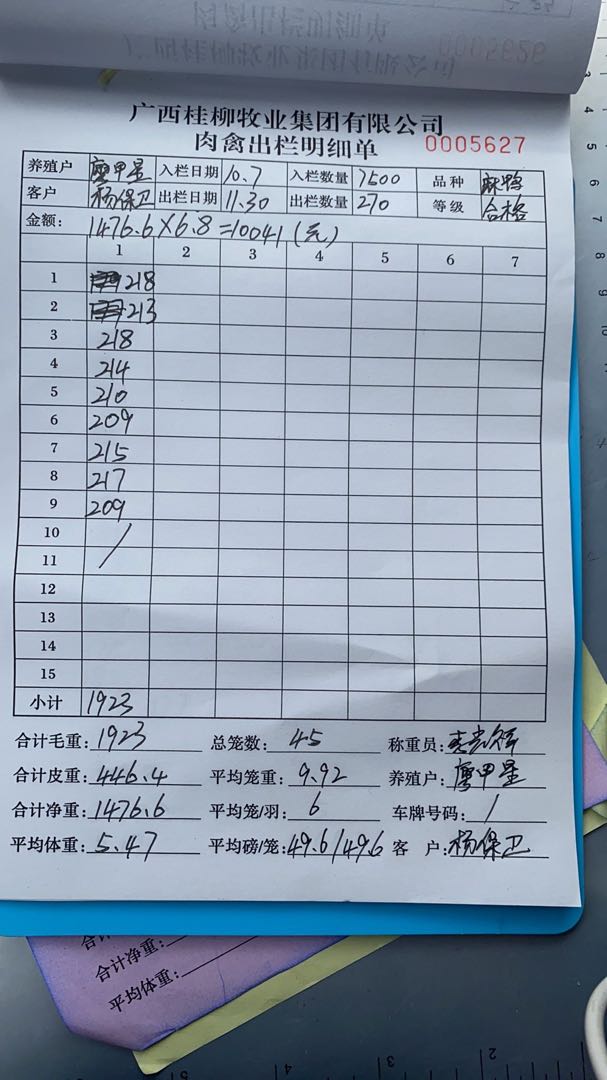 0005626
广西桂柳牧业集团有限公司
肉禽出栏明细单 0005627
养殖户 廖甲星 入栏日期 10.7 入栏数量 7500 品种 麻鸭
客户 杨保卫 出栏日期 11.30 出栏数量 270 等级 合格
金额: 1476.6×6.8=10041(元)
1 2 3 4 5 6 7
1 218
2 213
3 218
4 214
5 210
6 209
7 215
8 217
9 209
10 /
11
12
13
14
15
小计 1923
合计毛重: 1923 总笼数: 45 称重员:
合计皮重: 446.4 平均笼重: 9.92 养殖户: 廖甲星
合计净重: 1476.6 平均笼/羽: 6 车牌号码: /
平均体重: 5.47 平均磅/笼: 49.6/49.6 客 户: 杨保卫
合计净重:
平均体重: